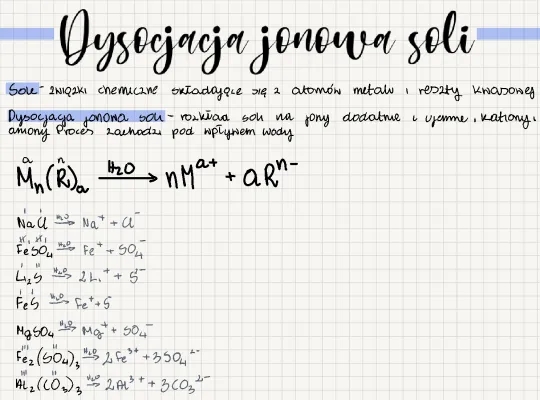 Dysocjacja jonowa soli
Sole - związki chemiczne składające się z atomów metalu i reszty kwasowej
Dysocjacja jonowa soli - rozkład soli na jony dodatnie i ujemne, kationy i
aniony Proces zachodzi pod wpływem wody
a n
Mₙ(R)ₐ —H₂O→ nMᵃ⁺ + aRⁿ⁻
I I
NaCl —H₂O→ Na⁺ + Cl⁻
II II
FeSO₄ —H₂O→ Fe⁺ + SO₄⁻
I II
Li₂S —H₂O→ 2Li⁺ + S²⁻
I I
FeS —H₂O→ Fe⁺ + S
MgSO₄ —H₂O→ Mg⁺ + SO₄⁻
III II
Fe₂(SO₄)₃ —H₂O→ 2Fe³⁺ + 3SO₄²⁻
III II
Al₂(CO₃)₃ —H₂O→ 2Al³⁺ + 3CO₃²⁻